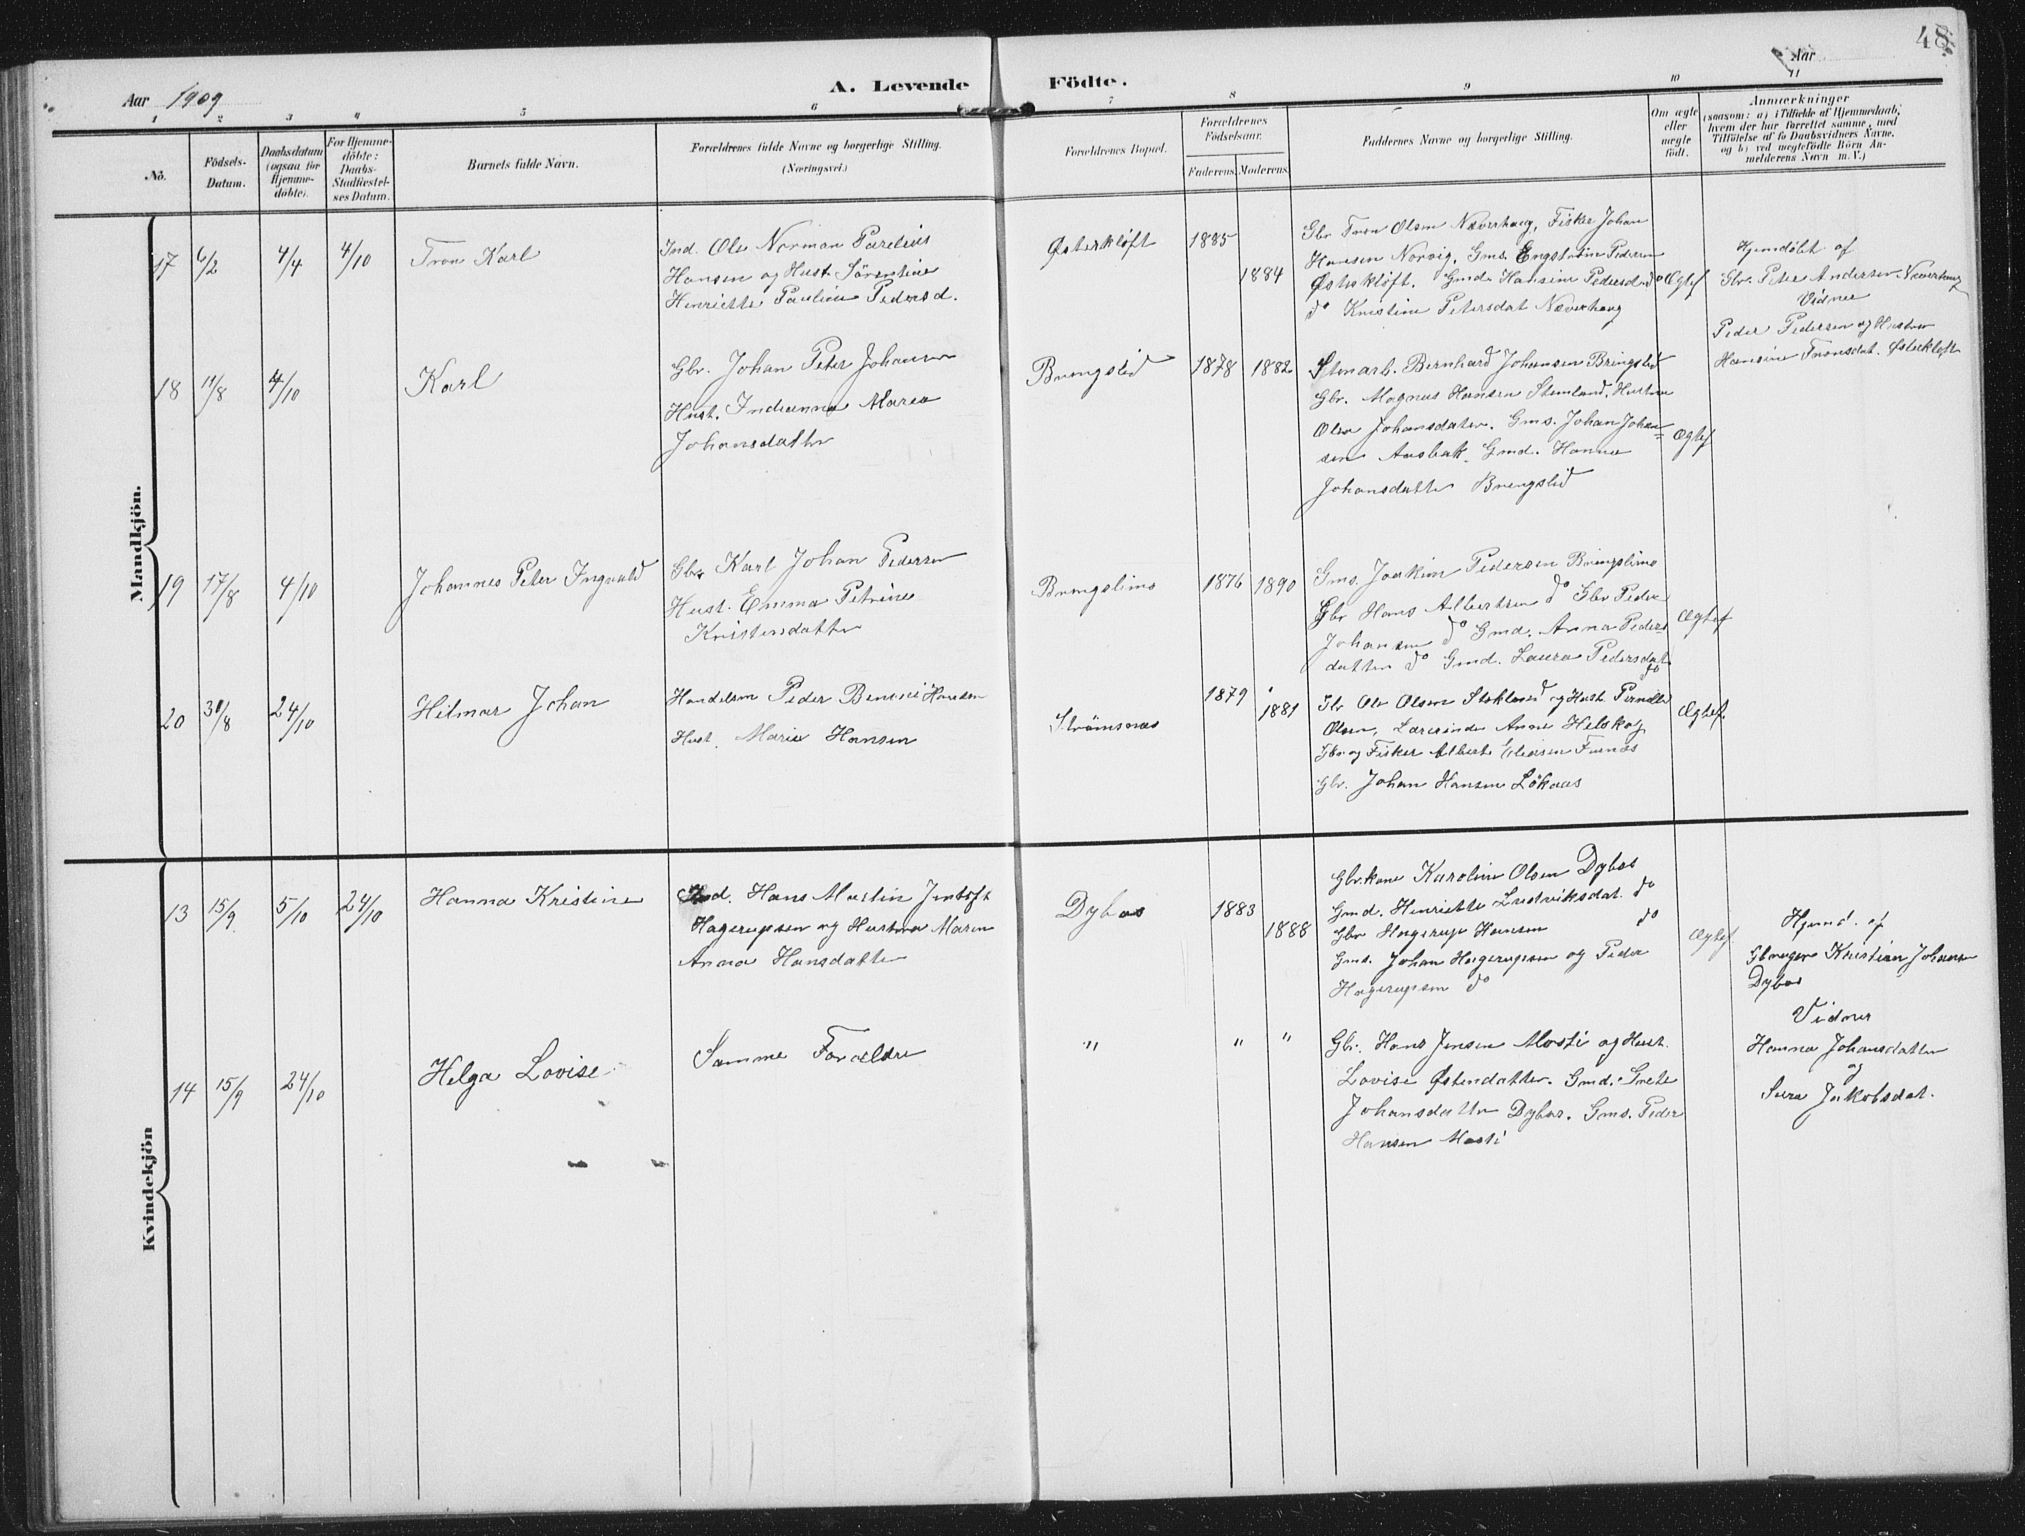 48
Aar 1909
A. Levende Födte.
Aar
1 2 3 4 5 6 7 8 9 10 11
No.
Födsels-
Datum.
Daabsdatum
(ogsaa for
Hjemme-
döbte).
For Hjemme-
döbte:
Daabs-
Stadfæstel-
ses Datum.
Barnets fulde Navn.
Forældrenes fulde Navne og borgerlige Stilling.
(Næringsvei.)
Forældrenes Bopæl.
Forældrenes
Födselsaar.
Faderens. Moderens.
Faddernes Navne og borgerlige Stilling.
Om ægte
eller
uægte
födt.
Anmærkninger
(saasom: a) i Tilfælde af Hjemmedaab,
hvem der har forrettet samme, med
Tilföielse af to Daabsvidners Navne,
og b) ved uægtefödte Börn An-
melderens Navn m. V.)
Mandkjön.
17 6/2 4/4 4/10 Tron Karl
Ind. Ole Norman Parelius
Hansen og Hust. Sörentine
Henriette Pauline Pedersd.
Österklöft 1885 1884
Gbr Tron Olsen Næverhaug, Fisker Johan
Hansen Norvig, Gms. Engström Pedersen
Österklöft. Gmd. Hansine Pedersdat do
do Kristine Petersdat Næverhaug
Ægtef
Hjemdöbt af
Gbr. Peter Andersen Næverhaug
Vidner
Peder Pedersen og Hustru
Hansine Tronsdat. Österkloft
18 11/8 4/10 Karl
Gbr. Johan Peter Johansen
Hust. Indianna Marea
Johansdatter
Bringslid 1878 1882
Stenarb. Bernhard Johansen Bringslid
Gbr. Magnus Hansen Stemland, Hustru
Olea Johansdater. Gms. Johan Johan-
sen Aasbak. Gmd. Hanna
Johansdatter Bringslid
Ægtef
19 17/8 4/10 Johannes Peter Ingvald
Gbr Karl Johan Pedersen
Hust. Emma Petrine
Kristensdatter
Bringslimo 1876 1890
Gms. Joakim Pedersen Bringslimo
Gbr Hans Albertsen do Gbr Peder
Johansen do Gmd. Anna Peders-
datter do Gmd. Laura Pedersdat
do
Ægtef
20 31/8 24/10 Hilmar Johan
Handelsm Peder Benoni Hansen
Hust. Marie Hansen
Strömsnes 1879 1881
Gbr Ole Olsen Stokland og Hust. Pernille
Olsen, Lærerinde Anne Helskog
Gbr og Fisker Albert Eliasen Furnes
Gbr. Johan Hansen Löknes
Ægtef.
Kvindekjön
13 15/9 5/10 24/10 Hanna Kristine
Ind. Hans Martin Jentoft
Hagerupsen og Hustru Maren
Anna Hansdatter
Dybos 1883 1888
Gbr.kone Karoline Olsen Dybos
Gmd. Henriette Ludviksdat. do
Gbr Hagerup Hansen do
Gms. Johan Hagerupsen og Peder
Hagerupsen do
Ægtef.
Hjemd. af
Gbruger Kristian Johansen
Dybos
Vidner
Hanna Johansdatter
og
Sara Jakobsdat.
14 15/9 24/10 Helga Lovise
Samme Forældre
" " "
Gbr. Hans Jensen Mosti og Hust.
Lovise Östensdatter. Gmd. Grete
Johansdatter Dybos. Gms. Peder
Hansen Mosti